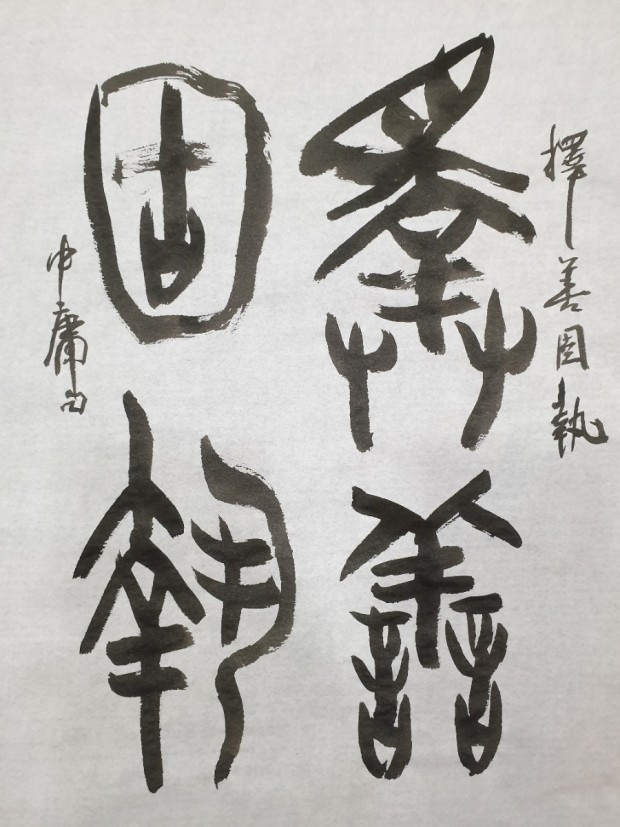 擇善固執
擇善
固執
中庸句